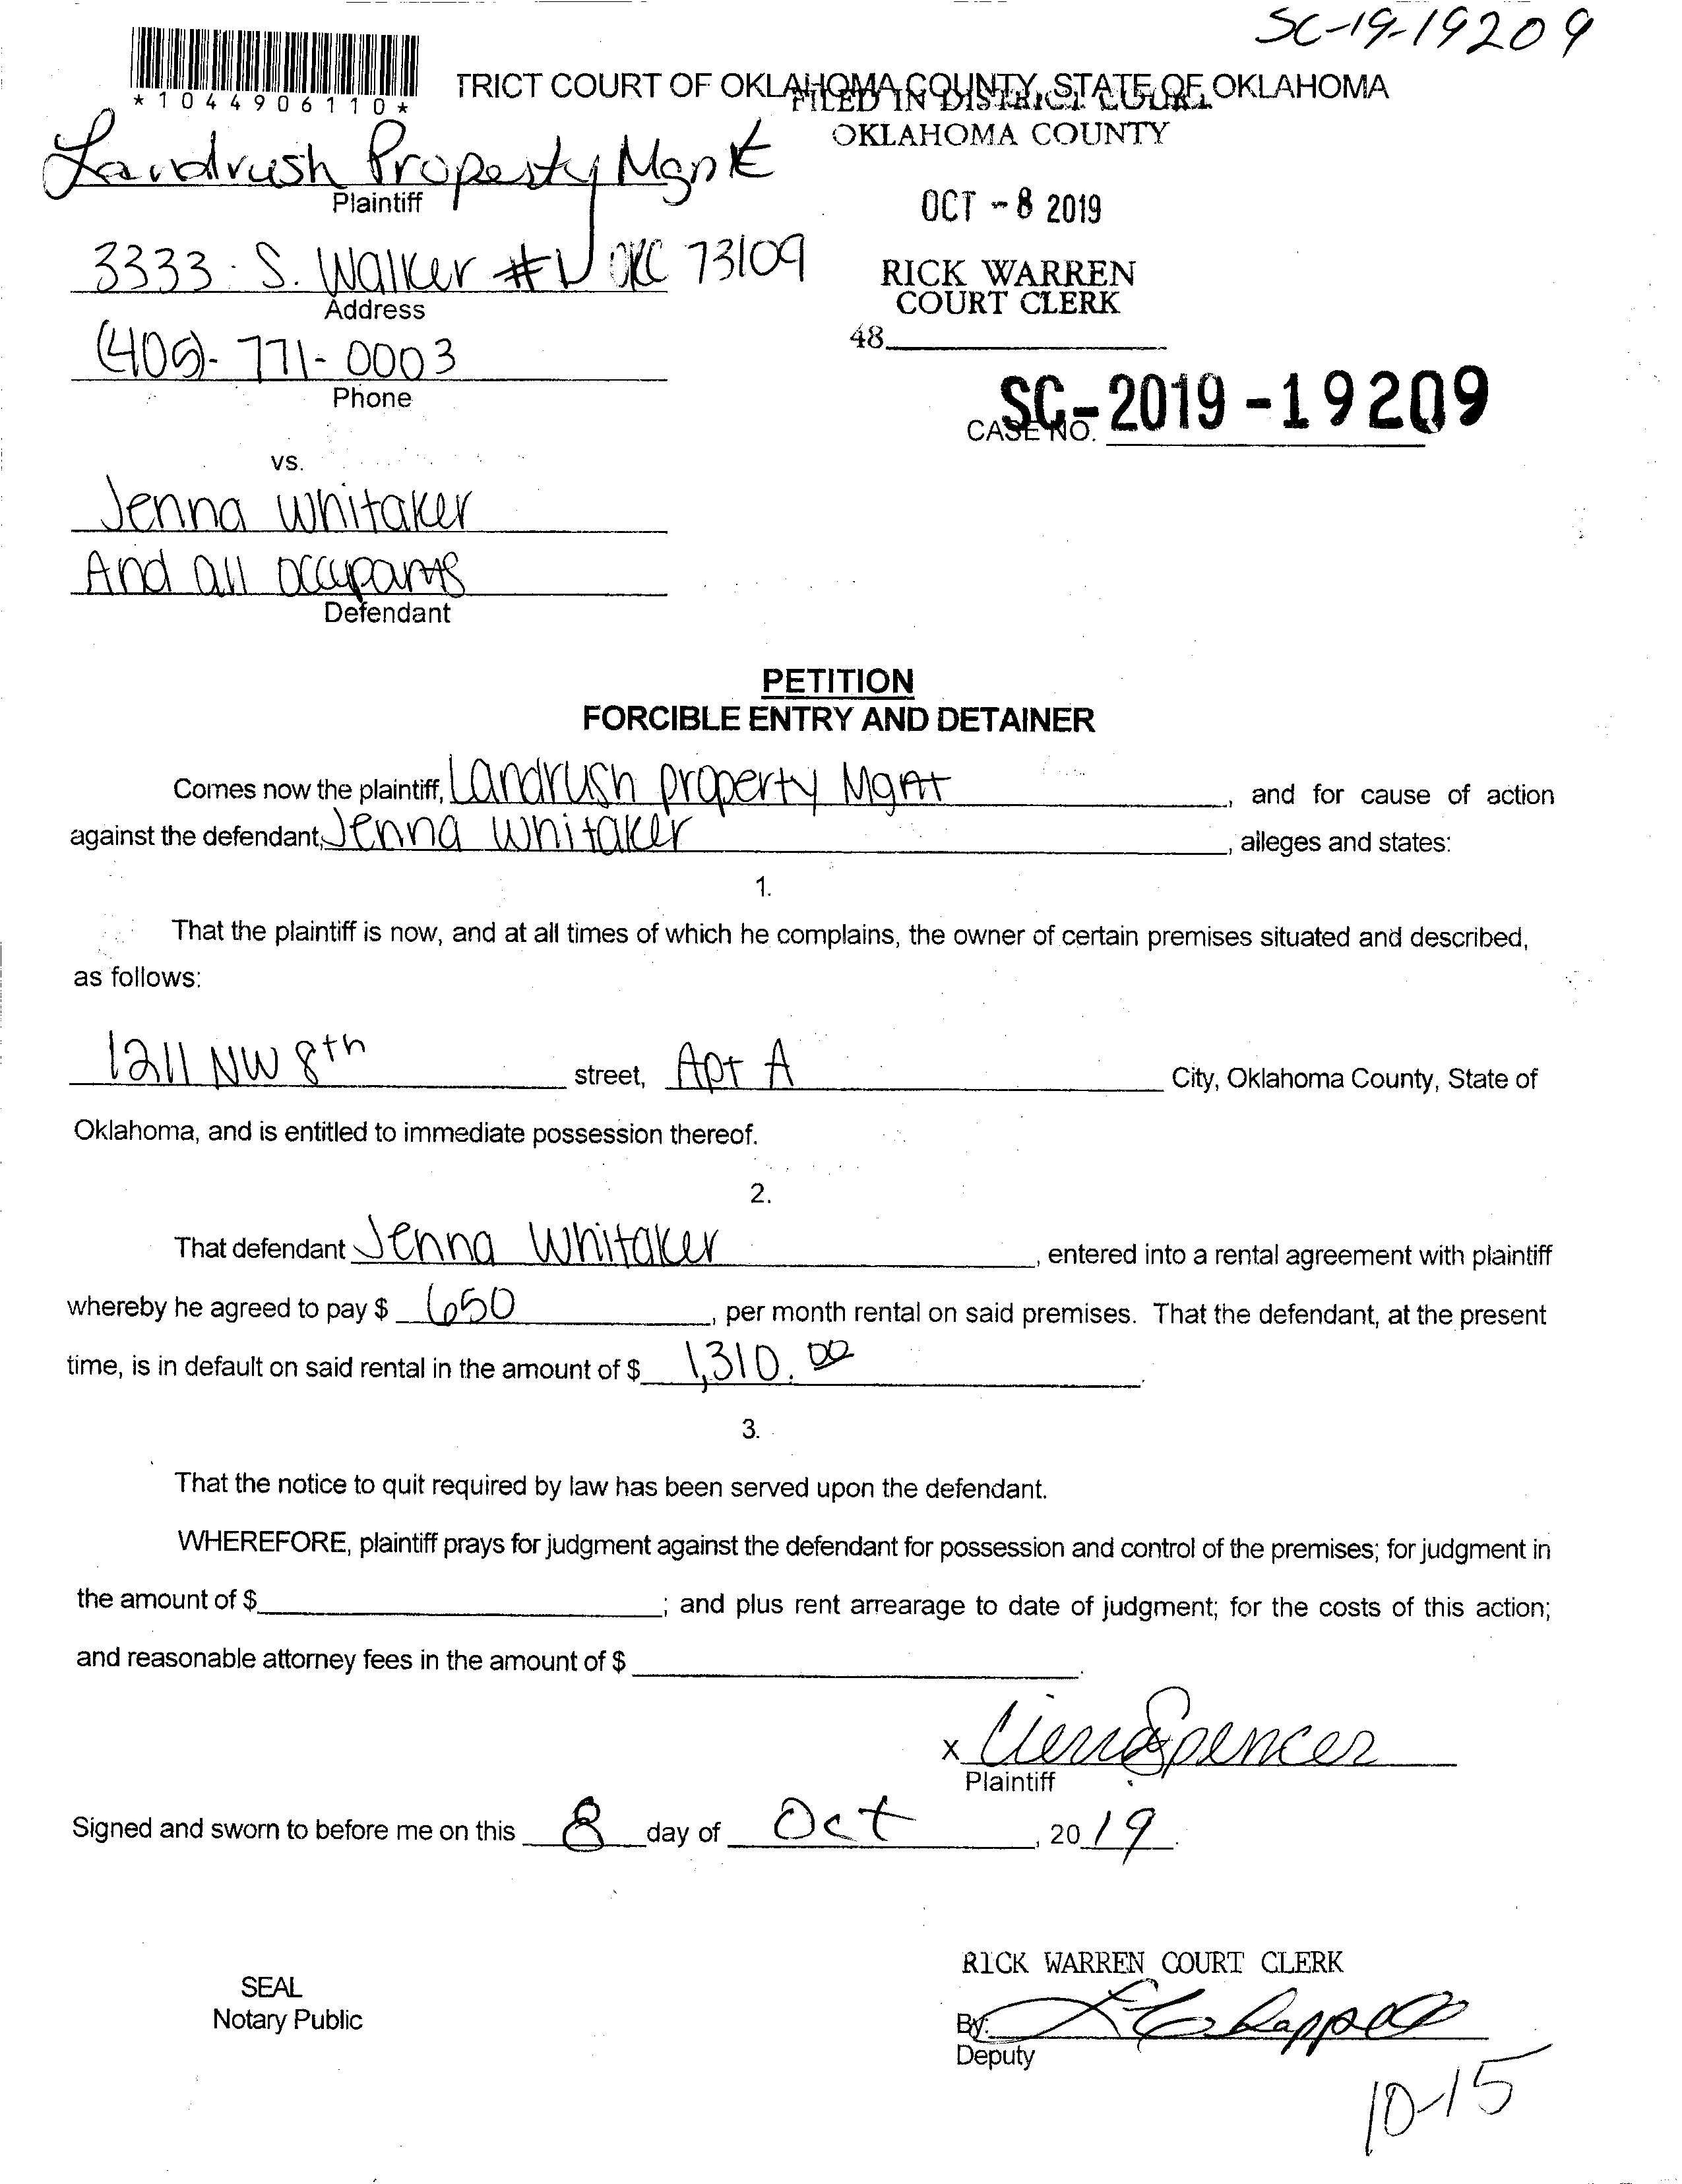 SC-19-19209
*1044906110*
TRICT COURT OF OKLAHOMA COUNTY, STATE OF OKLAHOMA
FILED IN DISTRICT COURT
OKLAHOMA COUNTY
Landrush Property Mgnt
Plaintiff
OCT -8 2019
3333 S. Walker # OKC 73109
Address
RICK WARREN
COURT CLERK
48
(405)-771-0003
Phone
SC-2019-19209
CASE NO.
vs.
Jenna Whitaker
And all occupants
Defendant
PETITION
FORCIBLE ENTRY AND DETAINER
Comes now the plaintiff, Landrush property Mgnt, and for cause of action
against the defendant, Jenna Whitaker, alleges and states:
1.
That the plaintiff is now, and at all times of which he complains, the owner of certain premises situated and described,
as follows:
1211 NW 8th street, Apt A City, Oklahoma County, State of
Oklahoma, and is entitled to immediate possession thereof.
2.
That defendant Jenna Whitaker, entered into a rental agreement with plaintiff
whereby he agreed to pay $ 650, per month rental on said premises. That the defendant, at the present
time, is in default on said rental in the amount of $ 1,310.00.
3.
That the notice to quit required by law has been served upon the defendant.
WHEREFORE, plaintiff prays for judgment against the defendant for possession and control of the premises; for judgment in
the amount of $ ; and plus rent arrearage to date of judgment; for the costs of this action;
and reasonable attorney fees in the amount of $ .
x Cierra Spencer
Plaintiff
Signed and sworn to before me on this 8 day of Oct, 2019.
RICK WARREN COURT CLERK
SEAL
Notary Public
By:
Deputy
10-15